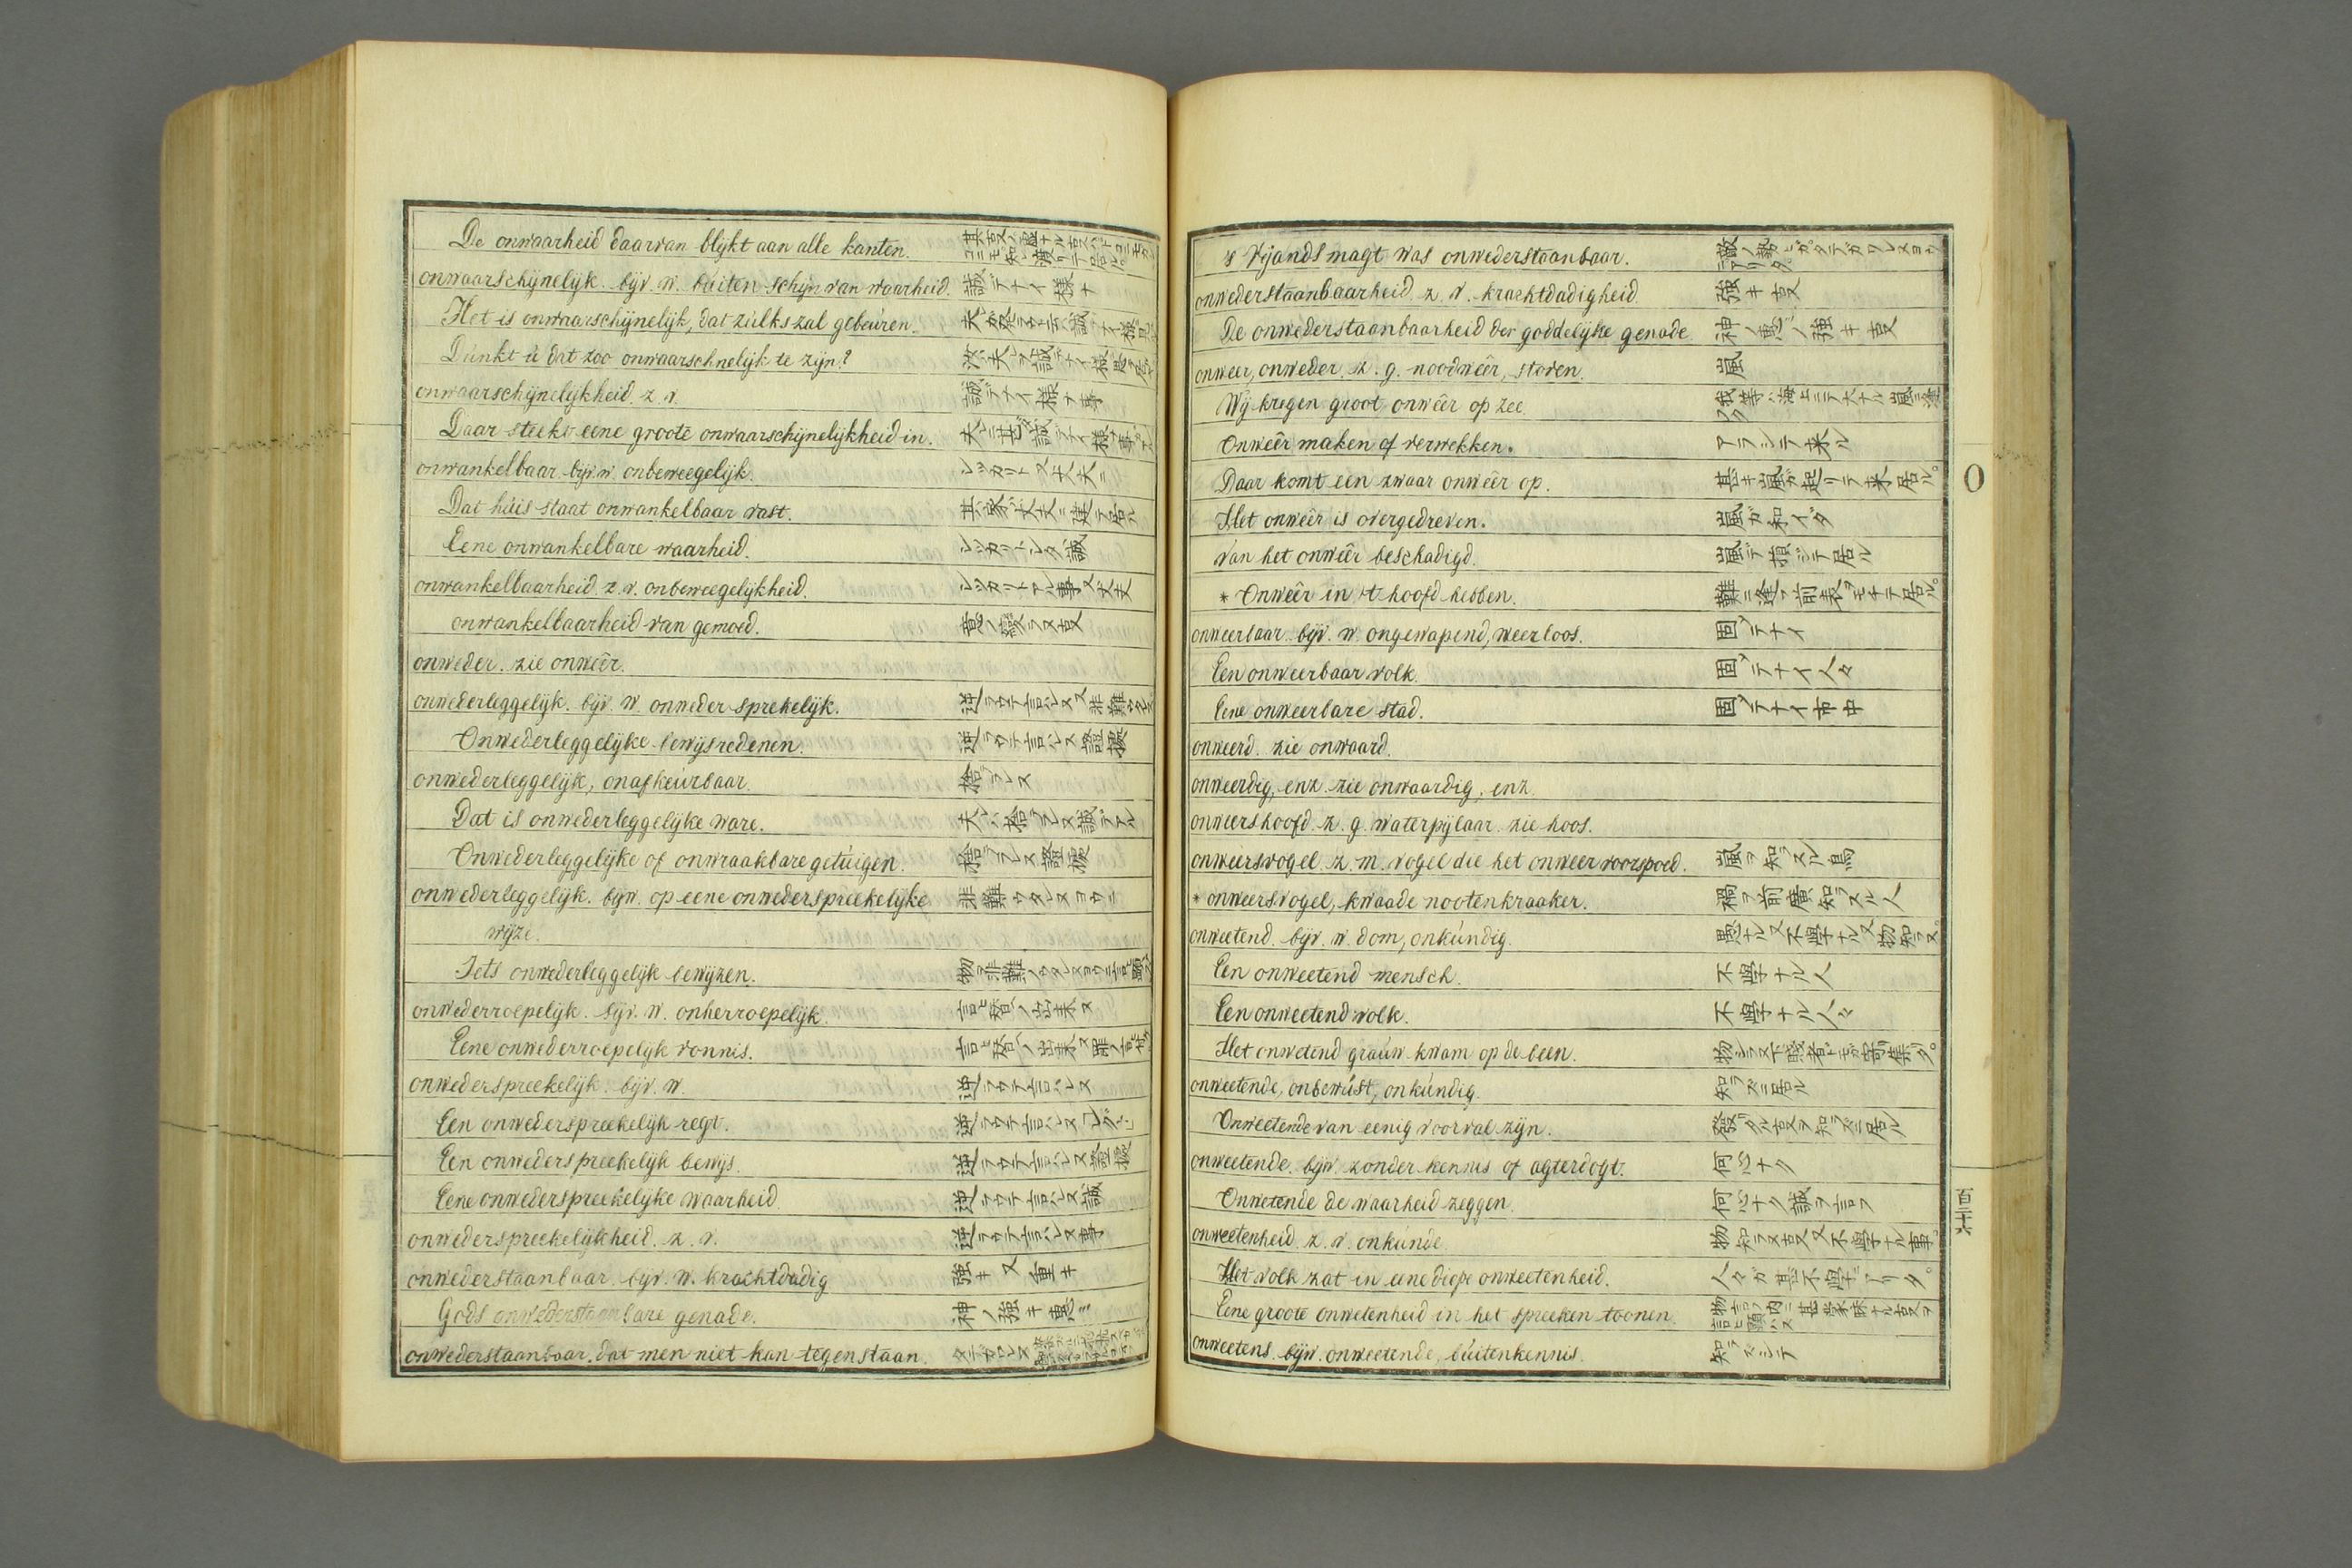 De onwaarheid daarvan blijkt aan alle kanten.
onwaarschijnelijk. bijv. w. buiten schijn van waarheid. 誠デナイ様ナ
Het is onwaarschijnelijk, dat zulks zal gebeuren.
Dunkt u dat zoo onwaarschnelijk te zijn?
onwaarschijnelijkheid. z. v. 誠デナイ様ナ事
Daar steekt eene groote onwaarschijnelijkheid in.
onwankelbaar bijv. w. onbeweegelijk. シッカリト又丈夫ニ
Dat huis staat onwankelbaar vast. 其家ガ丈夫ニ建テ居ル
Eene onwankelbare waarheid. シッカリトシタ誠
onwankelbaarheid. z. v. onbeweegelijkheid. シッカリトアル事又丈夫
onwankelbaarheid van gemoed. 意ノ變ラヌ支
onweder. zie onweêr.
onwederleggelijk. bijv. w. onweder sprekelijk. 逆ラウテ言ハレヌ又非難
Onwederleggelijke bewijsredenen. 逆ラウテ言ハレヌ證據
onwederleggelijk, onafkeurbaar. 捨ラレヌ
Dat is onwederleggelijke ware. 夫レハ捨ラレヌ誠デアル
Onwederleggelijke of onwraakbare getuigen. 捨ラレヌ證據
onwederleggelijk. bijw. op eene onwederspreekelijke 非難ウタレヌヨウニ
wijze.
Iets onwederleggelijk bewijzen.
onwederroepelijk. bijv. w. onherroepelijk. 言ヒ替ノ出来ヌ
Eene onwederroepelijk vonnis. 言ヒ替ノ出来ヌ罪ノ言
onwederspreekelijk. bijv. w. 逆ラウテ言ハレヌ
Een onwederspreekelijk regt. 逆ラウテ言ハレヌ
Een onwederspreekelijk bewijs. 逆ラウテ言ハレヌ證據
Eene onwederspreekelijke waarheid. 逆ラウテ言ハレヌ誠
onwederspreekelijkheid. z. v. 逆ラウテ言ハレヌ事
onwederstaanbaar. bijv. w. krachtdadig 強キ又重キ
Gods onwederstaanbare genade. 神ノ強キ恵ミ
onwederstaanbaar. dat men niet kan tegenstaan.
's Vijands magt was onwederstaanbaar.
onwederstaanbaarheid. z. v. krachtdadigheid. 強キ支
De onwederstaanbaarheid der goddelijke genade 神ノ恵ノ強キ支
onweer, onweder. z. g. noodweêr, storen. 嵐
Wij kregen groot onweêr op zee. 我等ハ海上ニテ大ナル嵐ニ逢フタ
Onweêr maken of verwekken. アラシテ来ル
Daar komt een zwaar onweêr op. 甚キ嵐ガ起リテ来居ル。
Het onweêr is overgedreven. 嵐ガ和イダ
Van het onweêr beschadigd. 嵐デ損ジテ居ル
* Onweêr in 't hoofd hebben. 難ニ逢フ前表ヲモチテ居ル。
onweerbaar. bijv. w. ongewapend, weerloos. 固テナイ
Een onweerbaar volk. 固テナイ人々
Eene onweerbare stad. 固テナイ市中
onweerd. zie onwaard.
onweerdig, enz. zie onwaardig, enz.
onweershoofd. z. g. waterpijlaar. zie hoos.
onweersvogel. z. m. vogel die het onweer voorspoed. 嵐ヲ知ラスル鳥
* onweersvogel, kwaade nootenkraaker. 禍ヲ前廣知ラスル人
onweetend. bijv. w. dom, onkundig. 愚ナル又不學ナル又物知ラヌ
Een onweetend mensch. 不學ナル人
Een onweetend volk. 不學ナル人々
Het onwetend graauw kwam op de been. 物シラヌ下賤者ドモガ寄リ集リタ。
onweetende, onbewust, onkundig. 知ラズニ居ル
Onweetende van eenig voorval zijn. 發リタル支ヲ知ラズニ居ル
onweetende. bijw. zonder kennis of agterdogt. 何心ナク
Onwetende de waarheid zeggen. 何心ナク誠ヲ言フ
onweetenheid. z. v. onkunde. 物知ラヌ支又不學ナル事。
Het volk zat in eene diepe onweetenheid. 人々ガ甚不學デアリタ。
Eene groote onwetenheid in het spreeken toonen.
onweetens. bijw. onweetende, buitenkennis. 知ラズシテ
O
百三十六